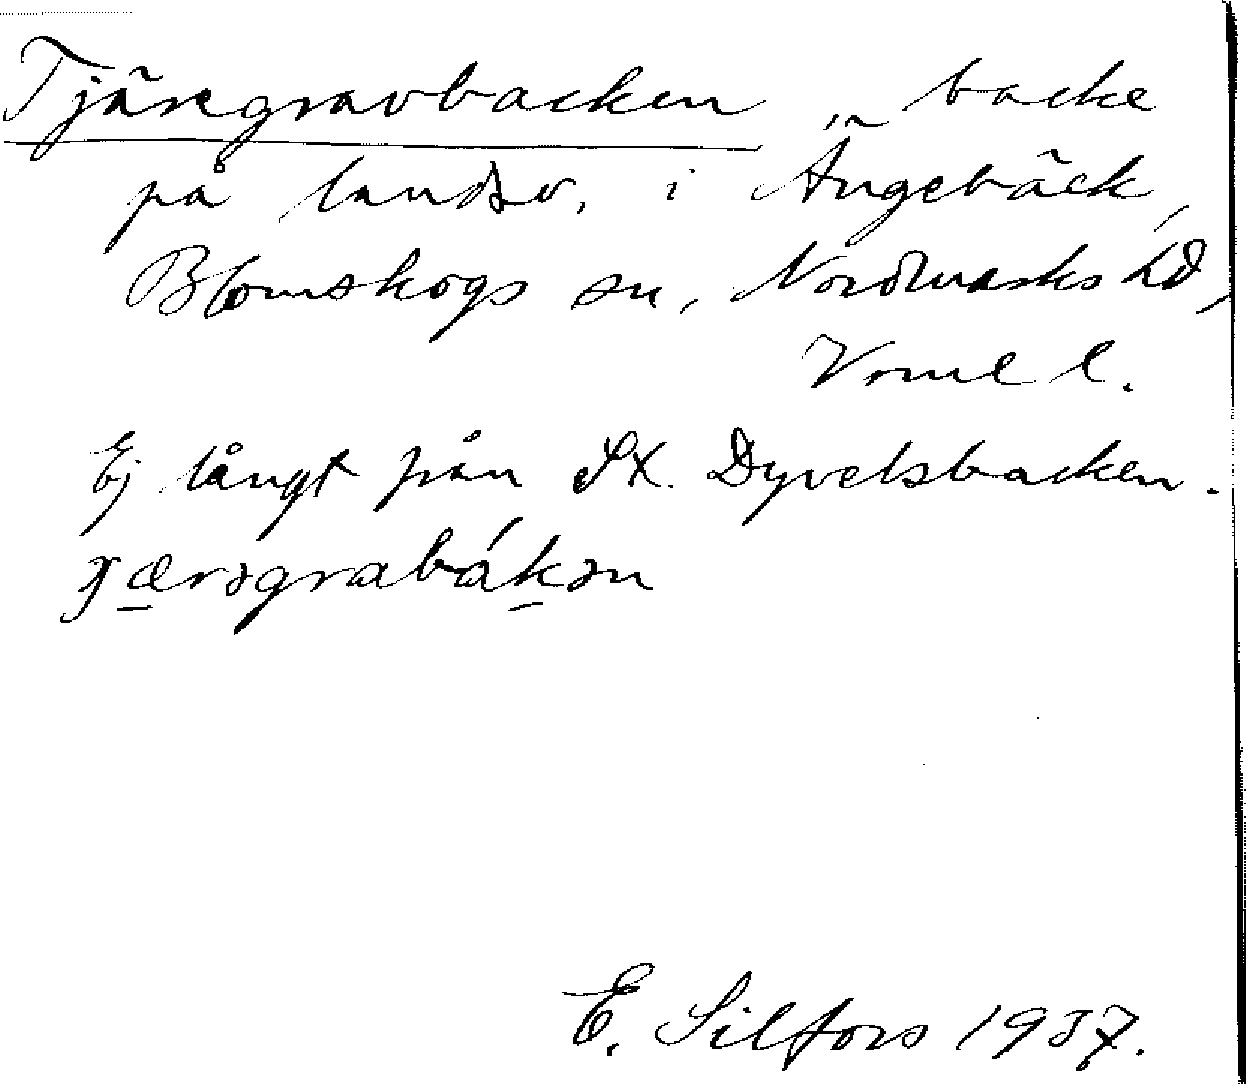 Tjäregravbacken, backe
på landsv. i Ängebäck,
Blomskogs sn, Nordmarks hd,
Vrml l.
Ej långt från St. Dyvelsbacken.
ɟærəgrabákən
E. Silfors 1937.